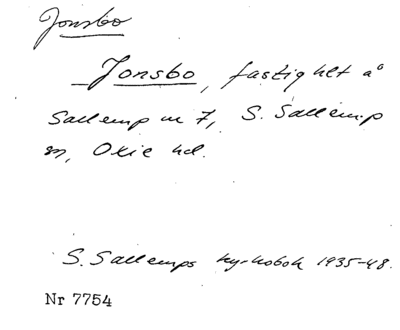 Jonsbo
Jonsbo, fastighet å
Sallerup nr 7, S. Sallerup
sn, Oxie hd.
S. Sallerups kyrkobok 1935-48.
Nr 7754